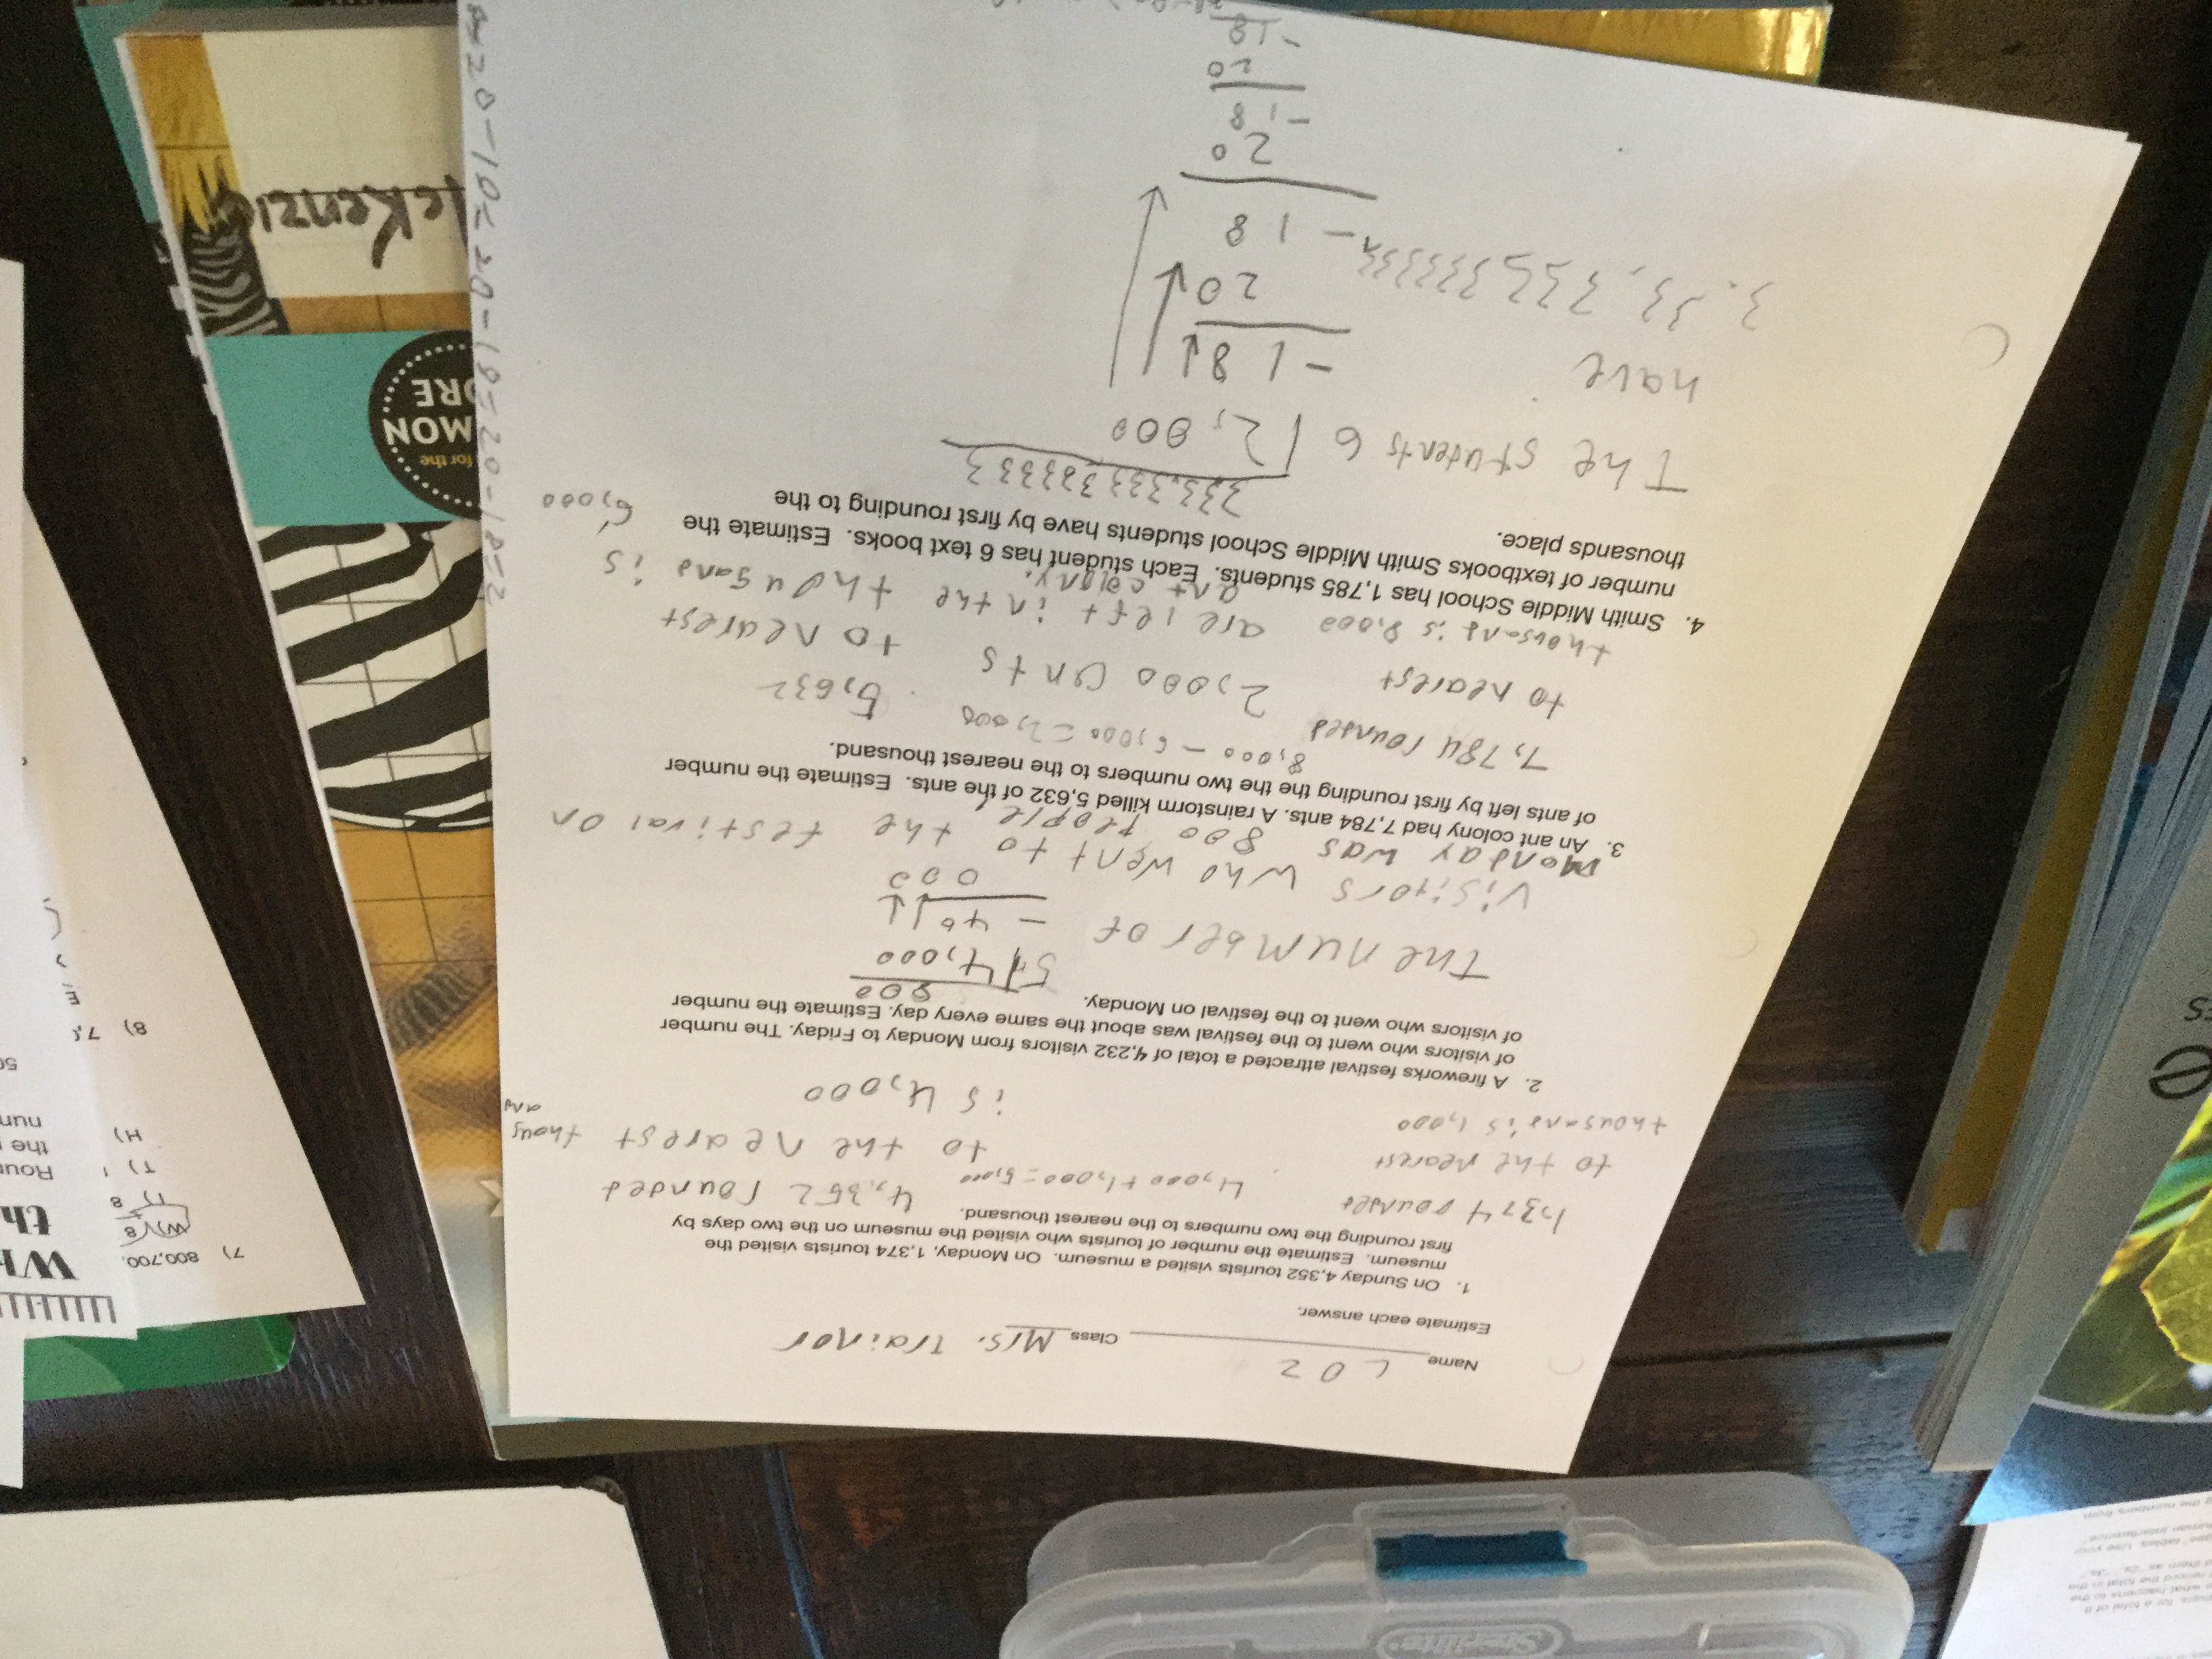 Sterilite
pups, for a total of 8
what happens to the
record the total in the
them as "2s," "3s,"
tables. Use your
human interference"
the numbers from
e
ES
Name LOZ
Class Mrs. Trainor
Estimate each answer.
1. On Sunday 4,352 tourists visited a museum. On Monday, 1,374 tourists visited the
museum. Estimate the number of tourists who visited the museum on the two days by
first rounding the two numbers to the nearest thousand.
1,374 rounded
to the nearest
thousand is 1,000
4,000+1,000=5,000
4,352 rounded
to the nearest thous
and
is 4,000
2. A fireworks festival attracted a total of 4,232 visitors from Monday to Friday. The number
of visitors who went to the festival was about the same every day. Estimate the number
of visitors who went to the festival on Monday.
800
5 4,000
- 40
000
The number of
visitors who went to the festival on
Monday was 800 people.
3. An ant colony had 7,784 ants. A rainstorm killed 5,632 of the ants. Estimate the number
of ants left by first rounding the the two numbers to the nearest thousand.
7,784 rounded
to nearest
thousand is 8,000
8,000 - 6,000 = 2,000
2,000 ants
are left in the
ant colony.
5,632
to nearest
thousand is
6,000
4. Smith Middle School has 1,785 students. Each student has 6 text books. Estimate the
number of textbooks Smith Middle School students have by first rounding to the
thousands place.
The students
have
3.33.333333333
333.333333333
6 2,000
- 18
20
- 18
20
- 18
20
- 18
7) 800,700,
8)
T)
H)
Wh
th
Rou
the
num
for the
MON
ORE
cKenzie